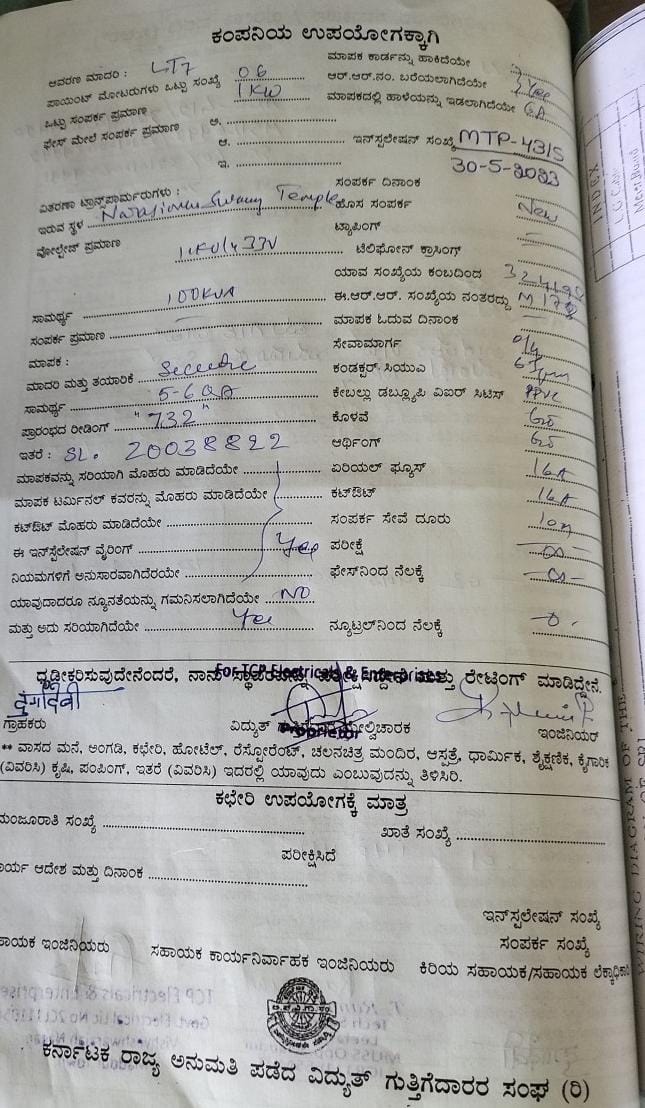 ಕಂಪನಿಯ ಉಪಯೋಗಕ್ಕಾಗಿ
ಮಾಪಕ ಕಾರ್ಡನ್ನು ಹಾಕಿದೆಯೇ
ಆವರಣ ಮಾದರಿ : LT7
ಆರ್.ಆರ್.ನಂ. ಬರೆಯಲಾಗಿದೆಯೇ Yes
ಪಾಯಿಂಟ್ ಮೋಟರುಗಳು ಒಟ್ಟು ಸಂಖ್ಯೆ 06
ಮಾಪಕದಲ್ಲಿ ಹಾಳೆಯನ್ನು ಇಡಲಾಗಿದೆಯೇ
ಒಟ್ಟು ಸಂಪರ್ಕ ಪ್ರಮಾಣ 1KW
ಫೇಸ್ ಮೇಲೆ ಸಂಪರ್ಕ ಪ್ರಮಾಣ ಅ.
ಆ. ಇನ್‌ಸ್ಪಲೇಷನ್ ಸಂಖ್ಯೆ MTP-4315
ಇ. 30-5-2023
ಸಂಪರ್ಕ ದಿನಾಂಕ
ವಿತರಣಾ ಟ್ರಾನ್ಸ್‌ಫಾರ್ಮರುಗಳು :
ಇರುವ ಸ್ಥಳ Swamy Temple ಹೊಸ ಸಂಪರ್ಕ New
ಟ್ಯಾಪಿಂಗ್
ವೋಲ್ಟೇಜ್ ಪ್ರಮಾಣ ಟೆಲಿಫೋನ್ ಕ್ರಾಸಿಂಗ್
ಯಾವ ಸಂಖ್ಯೆಯ ಕಂಬದಿಂದ
ಸಾಮರ್ಥ್ಯ 100KVA ಈ.ಆರ್.ಆರ್. ಸಂಖ್ಯೆಯ ನಂತರದ್ದು
ಸಂಪರ್ಕ ಪ್ರಮಾಣ ಮಾಪಕ ಓದುವ ದಿನಾಂಕ
ಮಾಪಕ : ಸೇವಾಮಾರ್ಗ
ಮಾದರಿ ಮತ್ತು ತಯಾರಿಕೆ Secure ಕಂಡಕ್ಟರ್ ಸಿಯುವಿ
ಸಾಮರ್ಥ್ಯ 5-60A ಕೇಬಲ್ಲು ಡಬ್ಲ್ಯೂಪಿ ವಿಐರ್ ಸಿಟಿಸ್
ಪ್ರಾರಂಭದ ರೀಡಿಂಗ್ "732" ಕೊಳವೆ
ಇತರೆ : SL. 20038822 ಆರ್ಥಿಂಗ್
ಮಾಪಕವನ್ನು ಸರಿಯಾಗಿ ಮೊಹರು ಮಾಡಿದೆಯೇ ಏರಿಯಲ್ ಫ್ಯೂಸ್ 16A
ಮಾಪಕ ಟರ್ಮಿನಲ್ ಕವರನ್ನು ಮೊಹರು ಮಾಡಿದೆಯೇ ಕಟ್‌ಔಟ್ 16A
ಕಟ್‌ಔಟ್ ಮೊಹರು ಮಾಡಿದೆಯೇ ಸಂಪರ್ಕ ಸೇವೆ ದೂರು 10m
ಈ ಇನ್‌ಸ್ಪಲೇಷನ್ ವೈರಿಂಗ್ Yes ಪರೀಕ್ಷೆ
ನಿಯಮಗಳಿಗೆ ಅನುಸಾರವಾಗಿದೆರಯೇ ಫೇಸ್‌ನಿಂದ ನೆಲಕ್ಕೆ
ಯಾವುದಾದರೂ ನ್ಯೂನತೆಯನ್ನು ಗಮನಿಸಲಾಗಿದೆಯೇ NO
ಮತ್ತು ಅದು ಸರಿಯಾಗಿದೆಯೇ Yes ನ್ಯೂಟ್ರಲ್‌ನಿಂದ ನೆಲಕ್ಕೆ
For TCP Electricals & Enterprises
ಧೃಡೀಕರಿಸುವುದೇನೆಂದರೆ, ನಾನು ಮತ್ತು ರೇಟಿಂಗ್ ಮಾಡಿದ್ದೇನೆ.
ದುರ್ಗಾದೇವಿ
ಗ್ರಾಹಕರು ವಿದ್ಯುತ್ ಮೇಲ್ವಿಚಾರಕ ಇಂಜಿನಿಯರ್
Proprietor
** ವಾಸದ ಮನೆ, ಅಂಗಡಿ, ಕಛೇರಿ, ಹೋಟೆಲ್, ರೆಸ್ಟೋರೆಂಟ್, ಚಲನಚಿತ್ರ ಮಂದಿರ, ಆಸ್ಪತ್ರೆ, ಧಾರ್ಮಿಕ, ಶೈಕ್ಷಣಿಕ, ಕೈಗಾರಿಕ
(ವಿವರಿಸಿ) ಕೃಷಿ, ಪಂಪಿಂಗ್, ಇತರೆ (ವಿವರಿಸಿ) ಇದರಲ್ಲಿ ಯಾವುದು ಎಂಬುವುದನ್ನು ತಿಳಿಸಿರಿ.
ಕಛೇರಿ ಉಪಯೋಗಕ್ಕೆ ಮಾತ್ರ
ಮಂಜೂರಾತಿ ಸಂಖ್ಯೆ ಖಾತೆ ಸಂಖ್ಯೆ
ಪರೀಕ್ಷಿಸಿದೆ
ಕಾರ್ಯ ಆದೇಶ ಮತ್ತು ದಿನಾಂಕ
ಇನ್‌ಸ್ಪಲೇಷನ್ ಸಂಖ್ಯೆ
ಸಂಪರ್ಕ ಸಂಖ್ಯೆ
ಸಹಾಯಕ ಇಂಜಿನಿಯರು ಸಹಾಯಕ ಕಾರ್ಯನಿರ್ವಾಹಕ ಇಂಜಿನಿಯರು ಕಿರಿಯ ಸಹಾಯಕ/ಸಹಾಯಕ ಲೆಕ್ಕಾಧಿಕಾರಿ
ಕರ್ನಾಟಕ ರಾಜ್ಯ ಅನುಮತಿ ಪಡೆದ ವಿದ್ಯುತ್ ಗುತ್ತಿಗೆದಾರರ ಸಂಘ (ರಿ)
INDEX
WIRING DIAGRAM OF THE